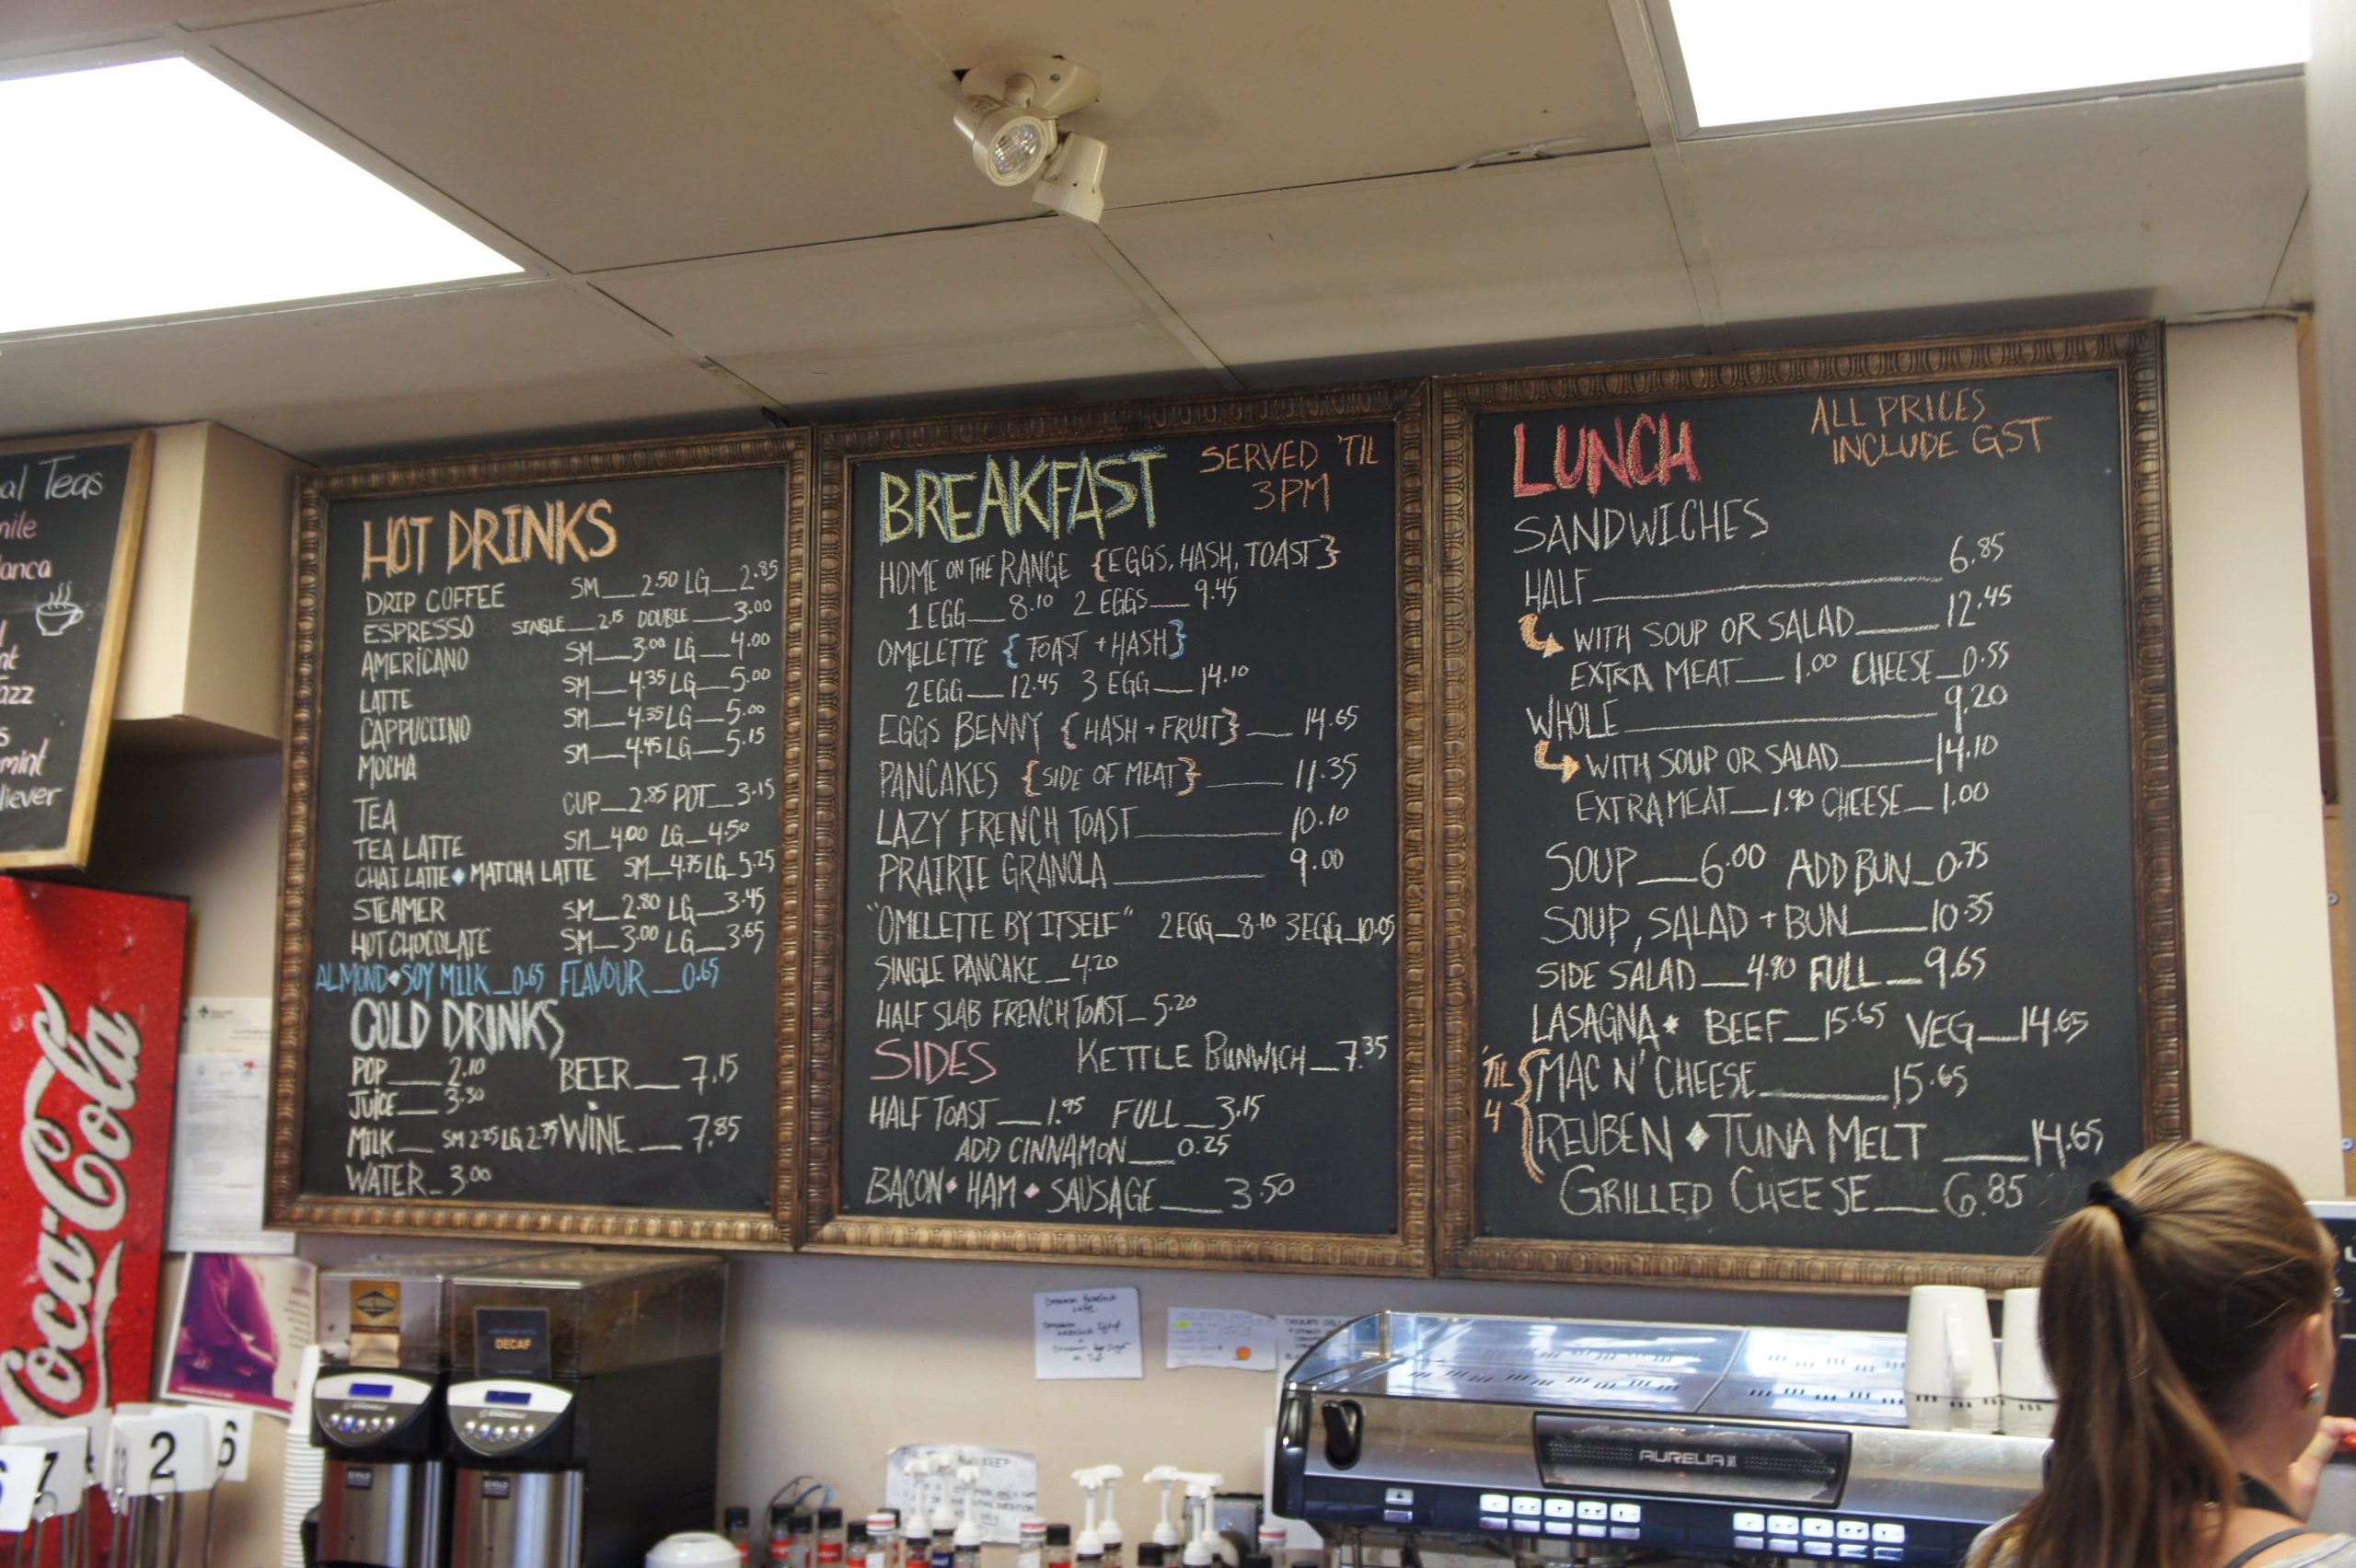 al Teas
nile
lanca
nt
azz
s
mint
liever
HOT DRINKS
DRIP COFFEE SM__2.50 LG__2.85
ESPRESSO SINGLE__2.15 DOUBLE__3.00
AMERICANO SM__3.00 LG__4.00
LATTE SM__4.35 LG__5.00
CAPPUCCINO SM__4.35 LG__5.00
MOCHA SM__4.45 LG__5.15
TEA CUP__2.85 POT__3.15
TEA LATTE SM__4.00 LG__4.50
CHAI LATTE ♦ MATCHA LATTE SM__4.75 LG_5.25
STEAMER SM__2.80 LG__3.45
HOT CHOCOLATE SM__3.00 LG__3.65
ALMOND ♦ SOY MILK_0.65 FLAVOUR__0.65
COLD DRINKS
POP___2.10 BEER__7.15
JUICE__3.30
MILK__SM 2.25 LG 2.75 WINE__7.85
WATER_3.00
BREAKFAST SERVED 'TIL
3PM
HOME ON THE RANGE {EGGS, HASH, TOAST}
1 EGG__8.10 2 EGGS__9.45
OMELETTE {TOAST + HASH}
2 EGG__12.45 3 EGG__14.10
EGGS BENNY {HASH + FRUIT}__14.65
PANCAKES {SIDE OF MEAT}____11.35
LAZY FRENCH TOAST________10.10
PRAIRIE GRANOLA________9.00
"OMELETTE BY ITSELF" 2 EGG_8.10 3 EGG_10.05
SINGLE PANCAKE_4.20
HALF SLAB FRENCH TOAST_5.20
SIDES KETTLE BUNWICH_7.35
HALF TOAST__1.95 FULL__3.15
ADD CINNAMON__0.25
BACON ♦ HAM ♦ SAUSAGE__3.50
LUNCH ALL PRICES
INCLUDE GST
SANDWICHES
HALF________6.85
WITH SOUP OR SALAD____12.45
EXTRA MEAT__1.00 CHEESE_0.55
WHOLE________9.20
WITH SOUP OR SALAD____14.10
EXTRA MEAT__1.90 CHEESE__1.00
SOUP__6.00 ADD BUN_0.75
SOUP, SALAD + BUN___10.35
SIDE SALAD__4.90 FULL__9.65
LASAGNA* BEEF_15.65 VEG__14.65
'TIL 4 { MAC N' CHEESE______15.65
REUBEN ♦ TUNA MELT___14.65
GRILLED CHEESE__6.85
Coca-Cola
DECAF
AURELIA II
7
2
6
KEEP